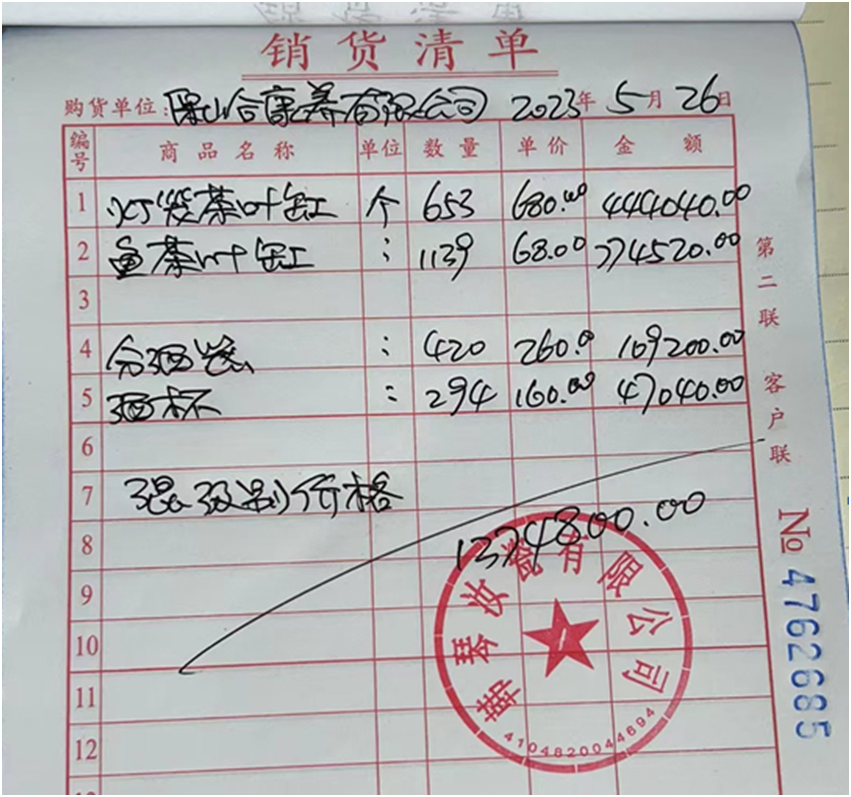 销货清单
购货单位：保山合康养有限公司 2023年5月26日
编号 商品名称 单位 数量 单价 金额
1 茶叶缸 个 653 680.00 444040.00
2 鱼茶叶缸 : 1139 68.00 774520.00
3
4 分酒器 : 420 260.0 109200.00
5 酒杯 : 294 160.00 47040.00
6
7 混级别价格
1374800.00
8
9
10
11
12
第二联 客户联
№ 4762685
韩琴汝瓷有限公司
4104820044694